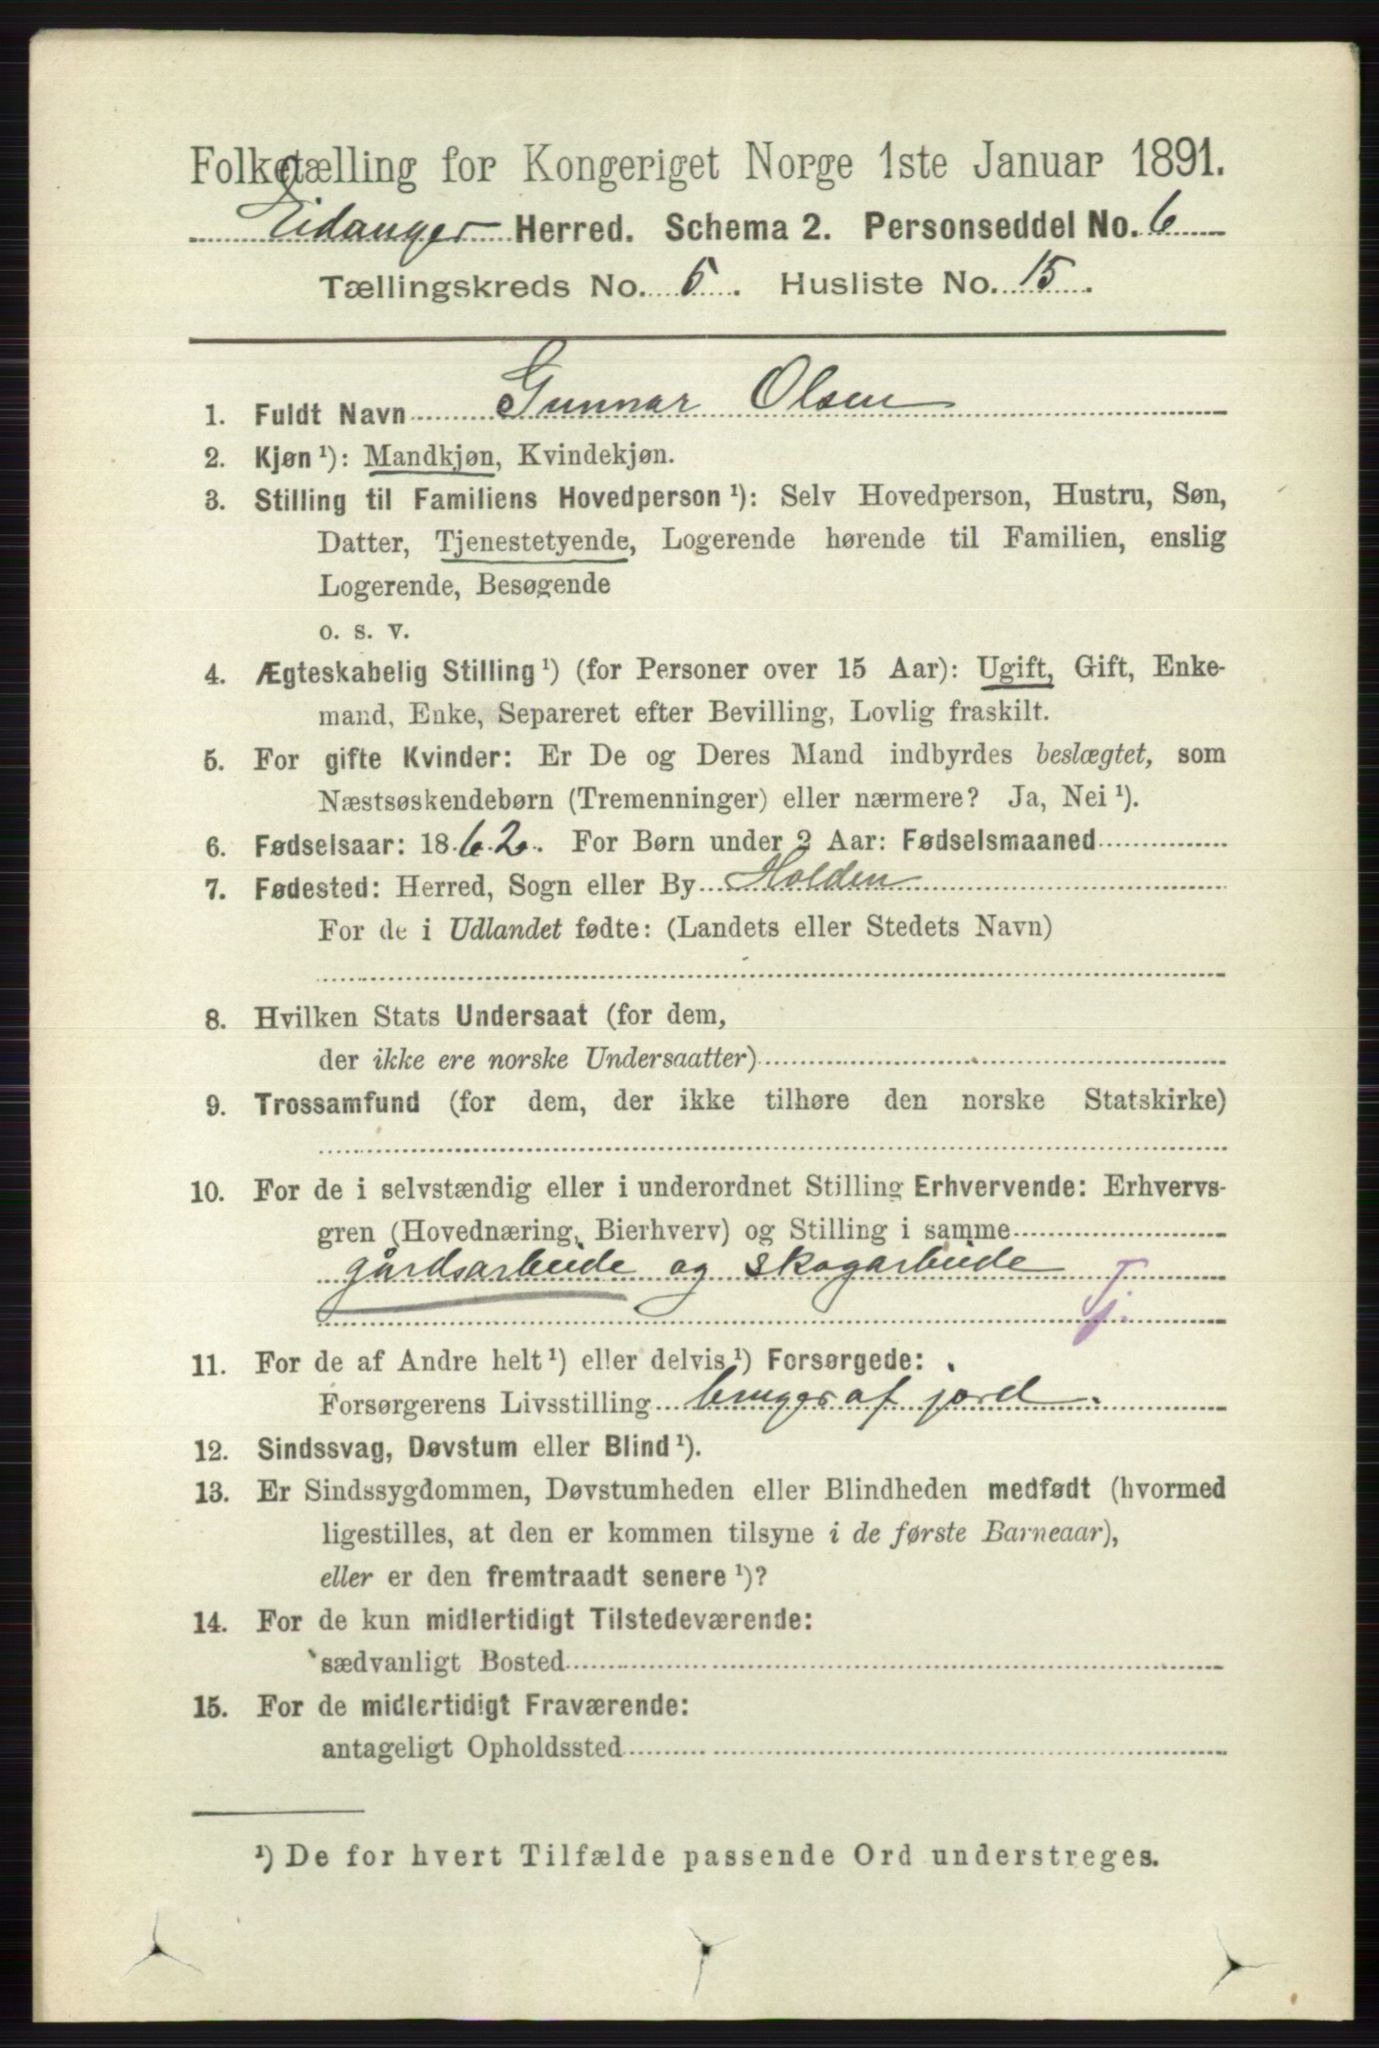 Folketælling for Kongeriget Norge 1ste Januar 1891.
Eidanger Herred. Schema 2. Personseddel No. 6
Tællingskreds No. 5. Husliste No. 15.
1. Fuldt Navn Gunnar Olsen
2. Kjøn ¹): Mandkjøn, Kvindekjøn.
3. Stilling til Familiens Hovedperson ¹): Selv Hovedperson, Hustru, Søn,
Datter, Tjenestetyende, Logerende hørende til Familien, enslig
Logerende, Besøgende
o. s. v.
4. Ægteskabelig Stilling ¹) (for Personer over 15 Aar): Ugift, Gift, Enke-
mand, Enke, Separeret efter Bevilling, Lovlig fraskilt.
5. For gifte Kvinder: Er De og Deres Mand indbyrdes beslægtet, som
Næstsøskendebørn (Tremenninger) eller nærmere? Ja, Nei ¹).
6. Fødselsaar: 1862. For Børn under 2 Aar: Fødselsmaaned
7. Fødested: Herred, Sogn eller By Holden
For de i Udlandet fødte: (Landets eller Stedets Navn)
8. Hvilken Stats Undersaat (for dem,
der ikke ere norske Undersaatter)
9. Trossamfund (for dem, der ikke tilhøre den norske Statskirke)
10. For de i selvstændig eller i underordnet Stilling Erhvervende: Erhvervs-
gren (Hovednæring, Bierhverv) og Stilling i samme
gårdsarbeide og skogarbeide
Tj.
11. For de af Andre helt ¹) eller delvis ¹) Forsørgede:
Forsørgerens Livsstilling bruger af jord.
12. Sindssvag, Døvstum eller Blind ¹).
13. Er Sindssygdommen, Døvstumheden eller Blindheden medfødt (hvormed
ligestilles, at den er kommen tilsyne i de første Barneaar),
eller er den fremtraadt senere ¹)?
14. For de kun midlertidigt Tilstedeværende:
sædvanligt Bosted
15. For de midlertidigt Fraværende:
antageligt Opholdssted
¹) De for hvert Tilfælde passende Ord understreges.